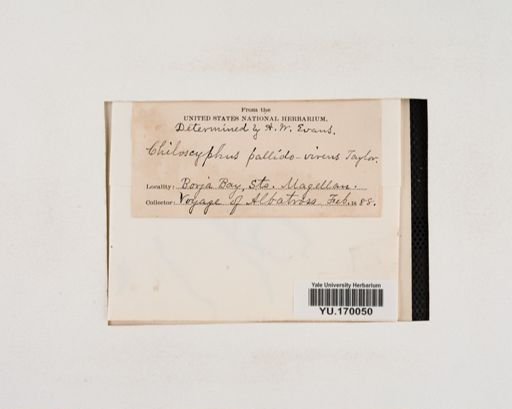 From the
UNITED STATES NATIONAL HERBARIUM.
Determined by A. W. Evans.
Chiloscyphus pallido-virens Taylor.
Locality: Borja Bay, Sts. Magellan.
Collector: Voyage of Albatross Feb. 1888.
Yale University Herbarium
YU.170050